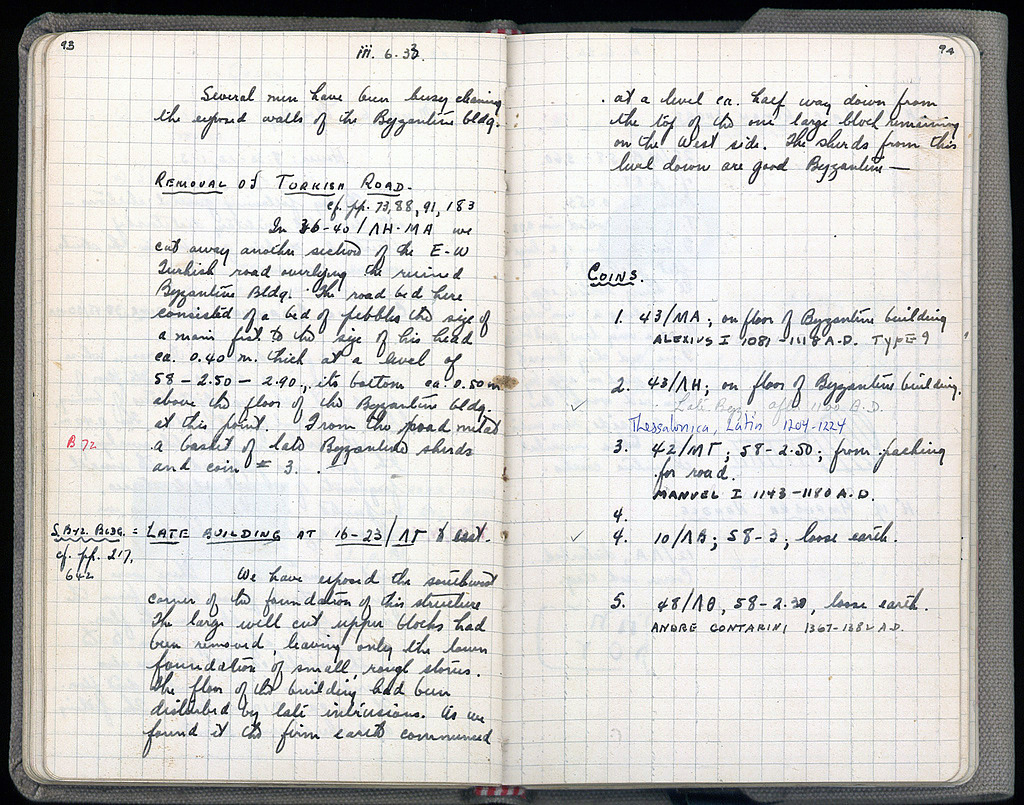 93
iii. 6. 33.
Several men have been busy cleaning
the exposed walls of the Byzantine bldg.
REMOVAL OF TURKISH ROAD.
cf. pp. 73, 88, 91, 183
In 36-40/ΛH-MA we
cut away another section of the E-W
Turkish road overlying the ruined
Byzantine Bldg. The road bed here
consisted of a bed of pebbles the size of
a mans fist to the size of his head
ca. 0.40 m. thick at a level of
58-2.50-2.90, its bottom ca 0.50m
above the floor of the Byzantine bldg.
at this point. From the road metal
B 72
a basket of late Byzantine sherds
and coin # 3.
S. Byz. BLDG. = LATE BUILDING AT 16-23/ΛΓ to east.
cf. pp. 217,
642
We have exposed the southwest
corner of the foundation of this structure
The large well cut upper blocks had
been removed, leaving only the lower
foundation of small, rough stones.
The floor of the building had been
disturbed by late intrusions. As we
found it the firm earth commenced
94
at a level ca. half way down from
the top of the one large block remaining
on the West side. The sherds from this
level down are good Byzantine—
COINS.
1. 43/MA; on floor of Byzantine building
ALEXIUS I 1081-1118 A.D. TYPE 9
2. 43/ΛH; on floor of Byzantine building.
Late Byz. after 1100 A.D.
Thessalonica, Latin 1204-1224
3. 42/MΓ; 58-2.50; from packing
for road.
MANUEL I 1143-1180 A.D.
4.
4. 10/ΛB; 58-3; loose earth.
5. 48/ΛΘ, 58-2.30, loose earth.
ANDRE CONTARINI 1367-1382 A.D.